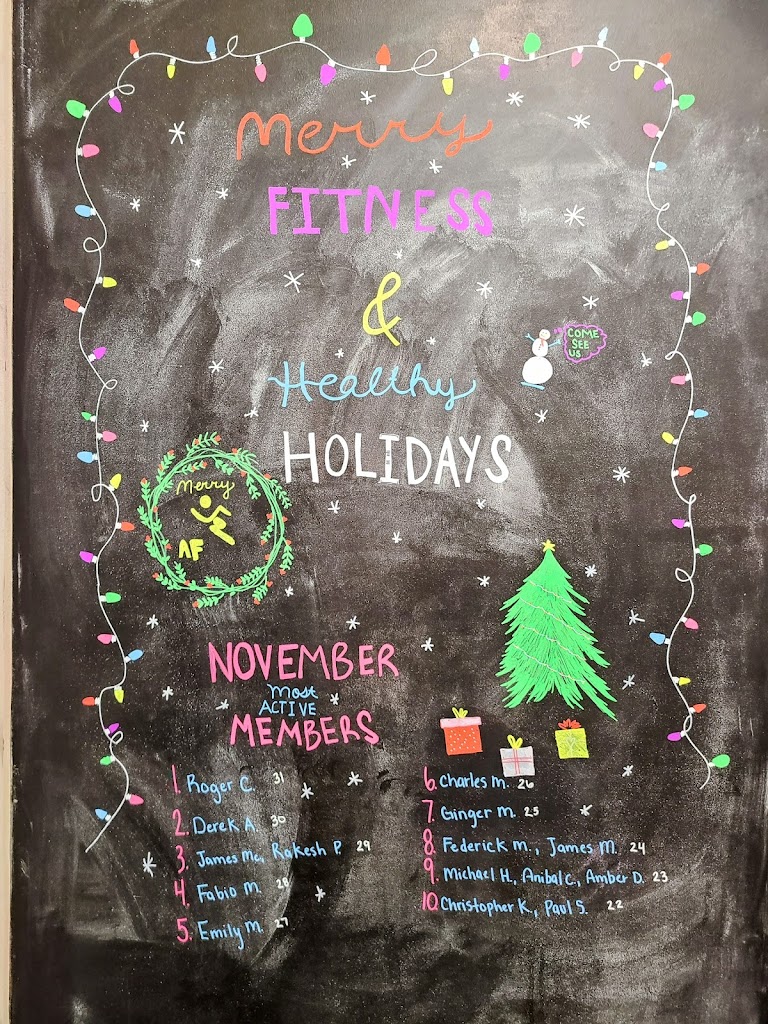 Merry
FITNESS
&
Healthy
HOLIDAYS
COME
SEE
US
Merry
AF
NOVEMBER
most
ACTIVE
MEMBERS
1. Roger C. 31
2. Derek A. 30
3. James Mc, Rakesh P. 29
4. Fabio M. 28
5. Emily M. 27
6. Charles M. 26
7. Ginger M. 25
8. Federick M., James M. 24
9. Michael H., Anibal C., Amber D. 23
10. Christopher K., Paul S. 22